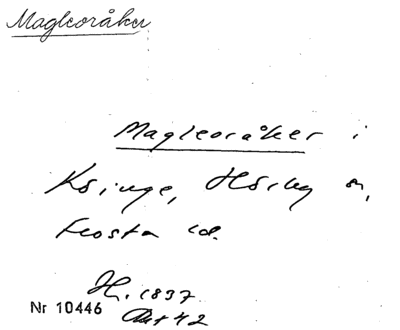 Magleoråker
Magleoråker i
Köinge, Hörby sn,
Frosta hd.
H. 1837
Nr 10446
Akt 42